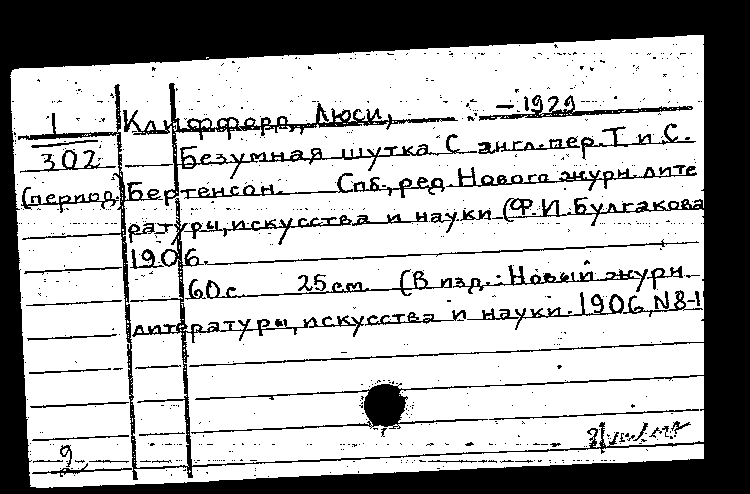 1
Клиффорд, Люси, – 1929
302 Безумная шутка С англ. пер. Т и С.
(период) Бертенсон. Спб., ред. Нового журн. лите
ратуры, искусства и науки (Ф. И. Булгакова
1906.
60 с. 25 см. (В изд.: Новый журн.
литературы, искусства и науки. 1906, N 8-1
2